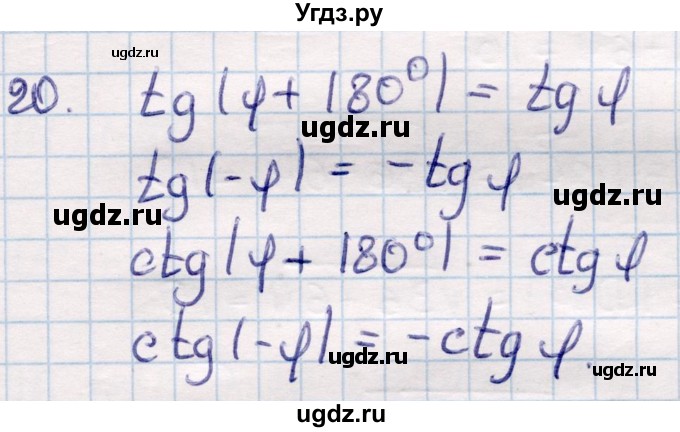 Угдз.ру
ugdz.ru
20. tg(φ + 180°) = tg φ
ugdz.ru
tg(-φ) = -tg φ
ugdz.ru
ugdz.ru
ctg(φ + 180°) = ctg φ
ugdz.ru
ugdz.ru
ctg(-φ) = -ctg φ.
ugdz.ru
ugdz.ru
ugdz.ru